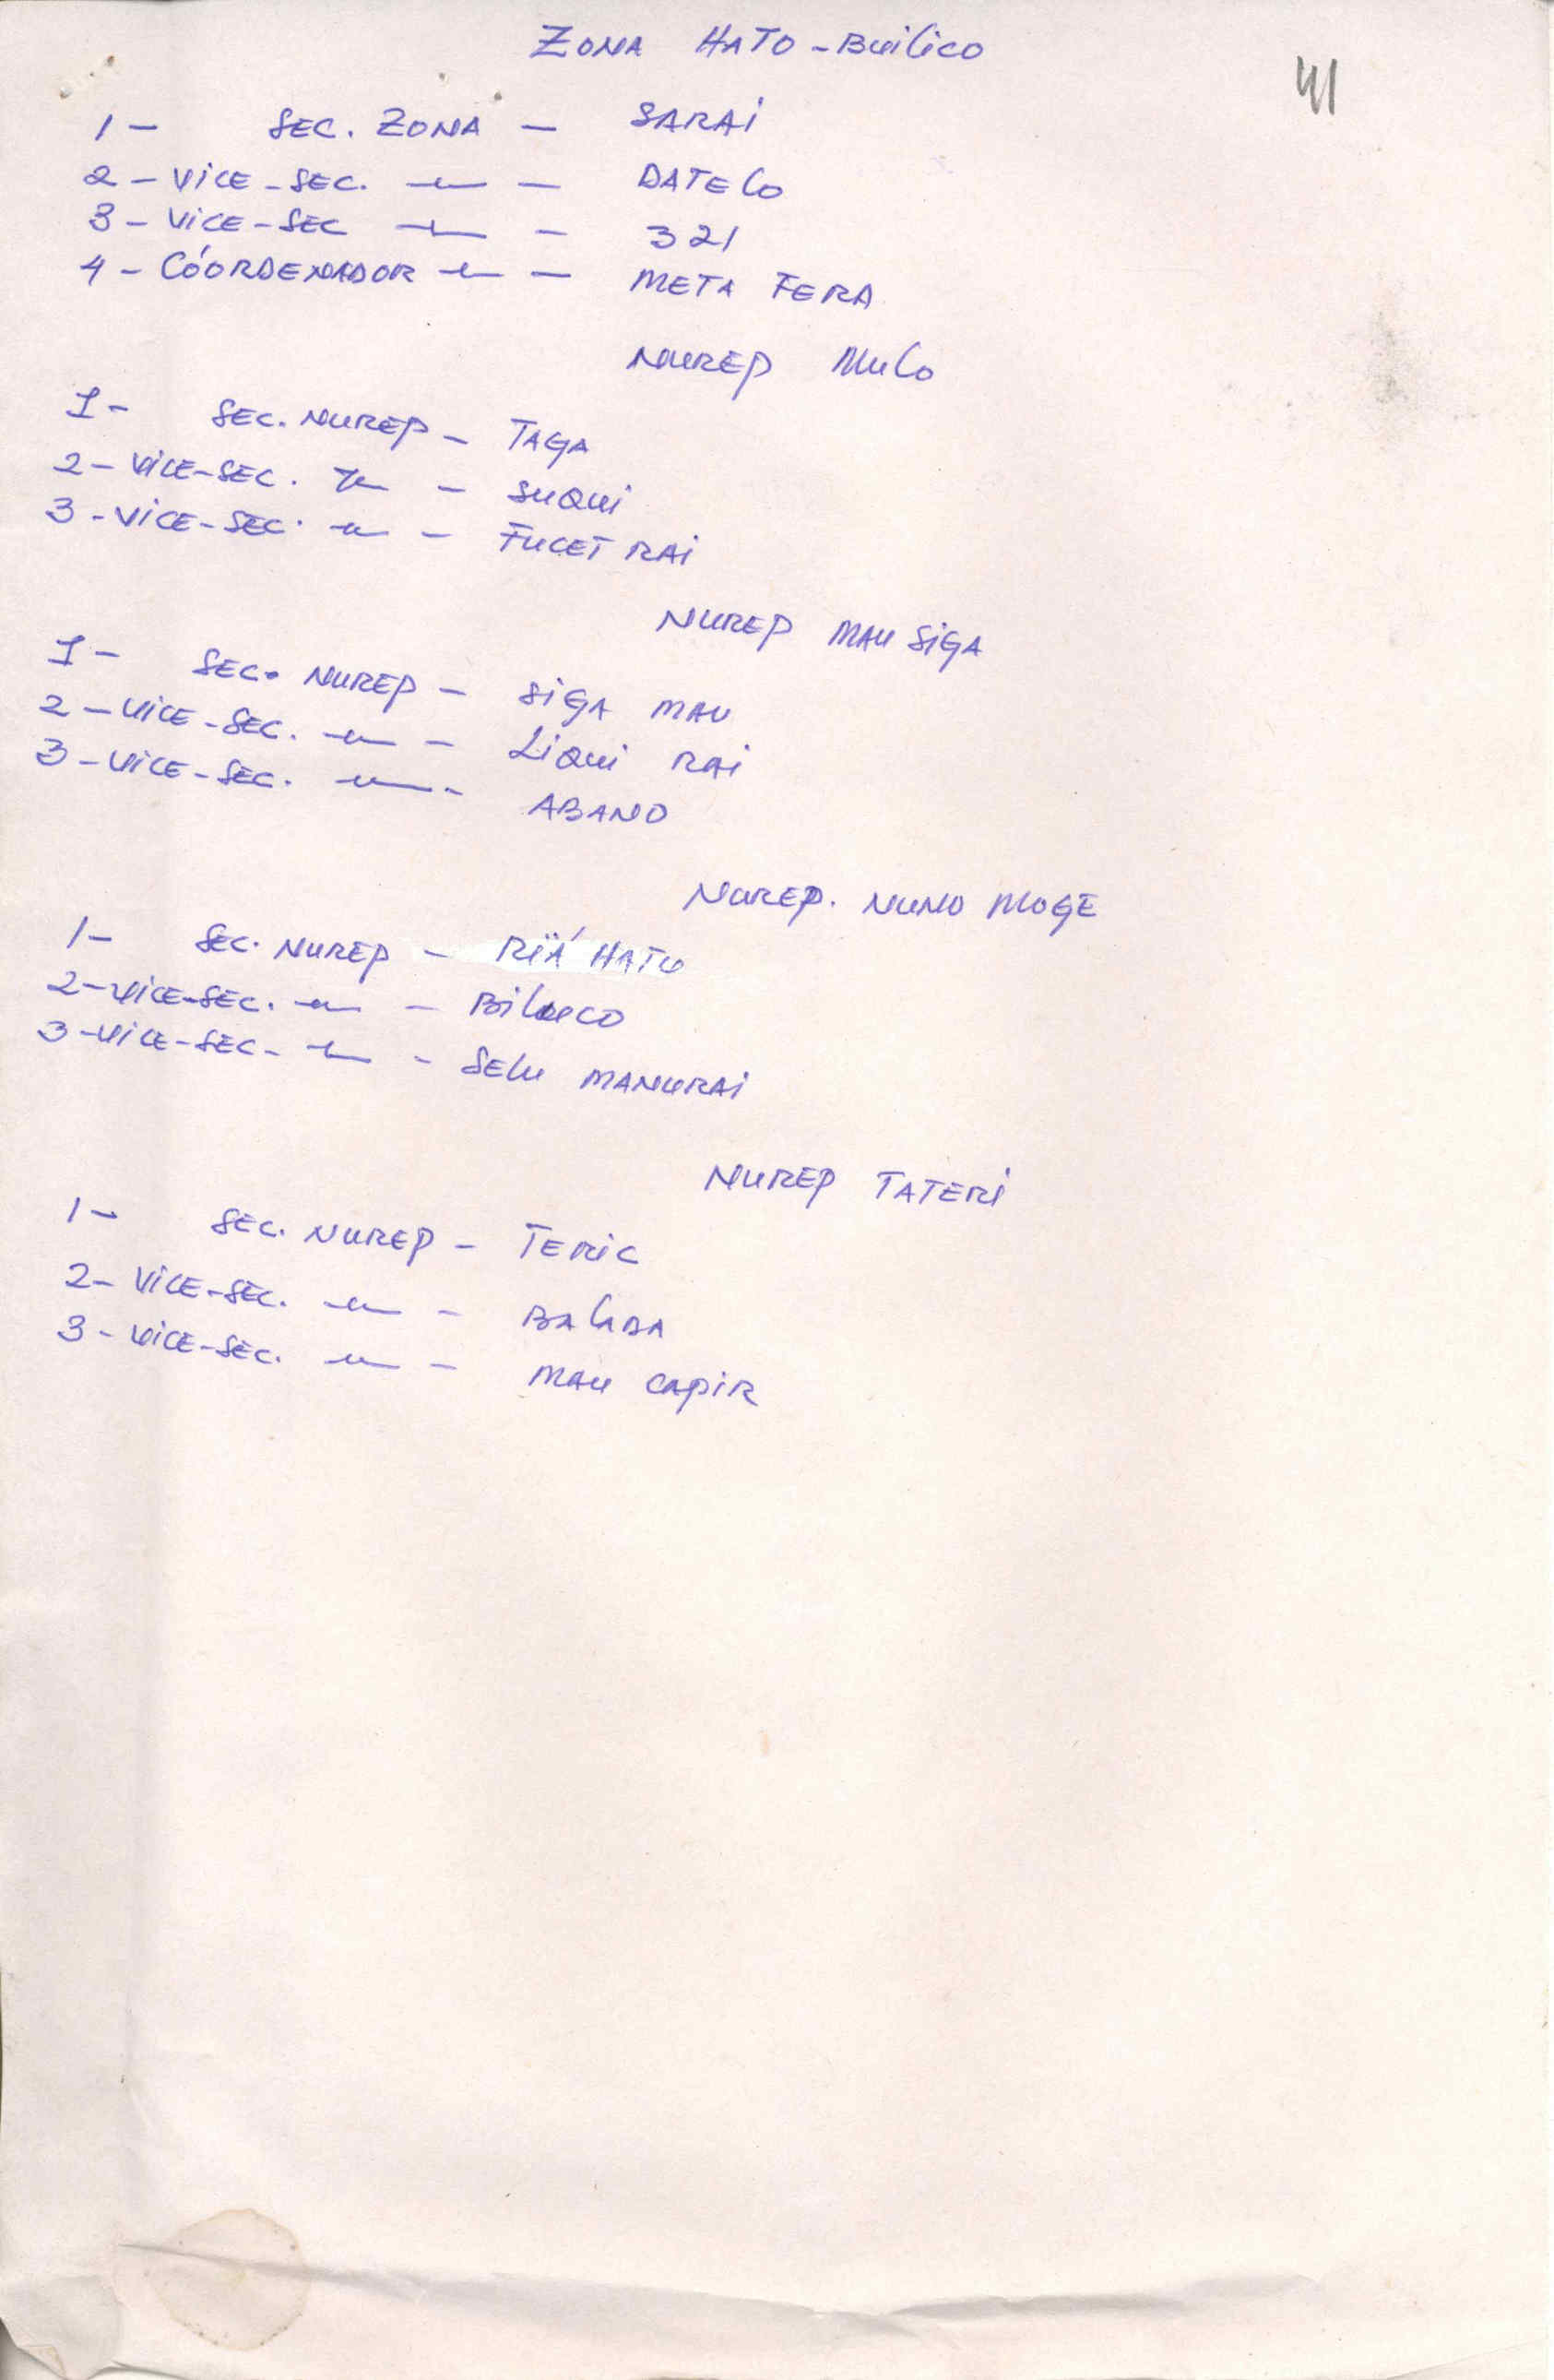 ZONA HATO-BUILICO
41
1- SEC. ZONA - SARAI
2-VICE-SEC. -"- - DATELO
3-VICE-SEC -"- - 321
4-CÓORDENADOR -"- - META FERA
NUREP MULO
1- SEC. NUREP - TAGA
2-VICE-SEC. -"- - SUQUI
3-VICE-SEC. -"- - FUCET RAI
NUREP MAU SIGA
1- SEC. NUREP - SIGA MAU
2-VICE-SEC. -"- - LIQUI RAI
3-VICE-SEC. -"- - ABANO
NUREP. NUNO MOGE
1- SEC. NUREP - RIÁ HATU
2-VICE-SEC. -"- - BILUCO
3-VICE-SEC- -"- - SELU MANURAI
NUREP TATERI
1- SEC. NUREP - TERIC
2-VICE-SEC. -"- - BALABA
3-VICE-SEC. -"- - MAU CAPIR